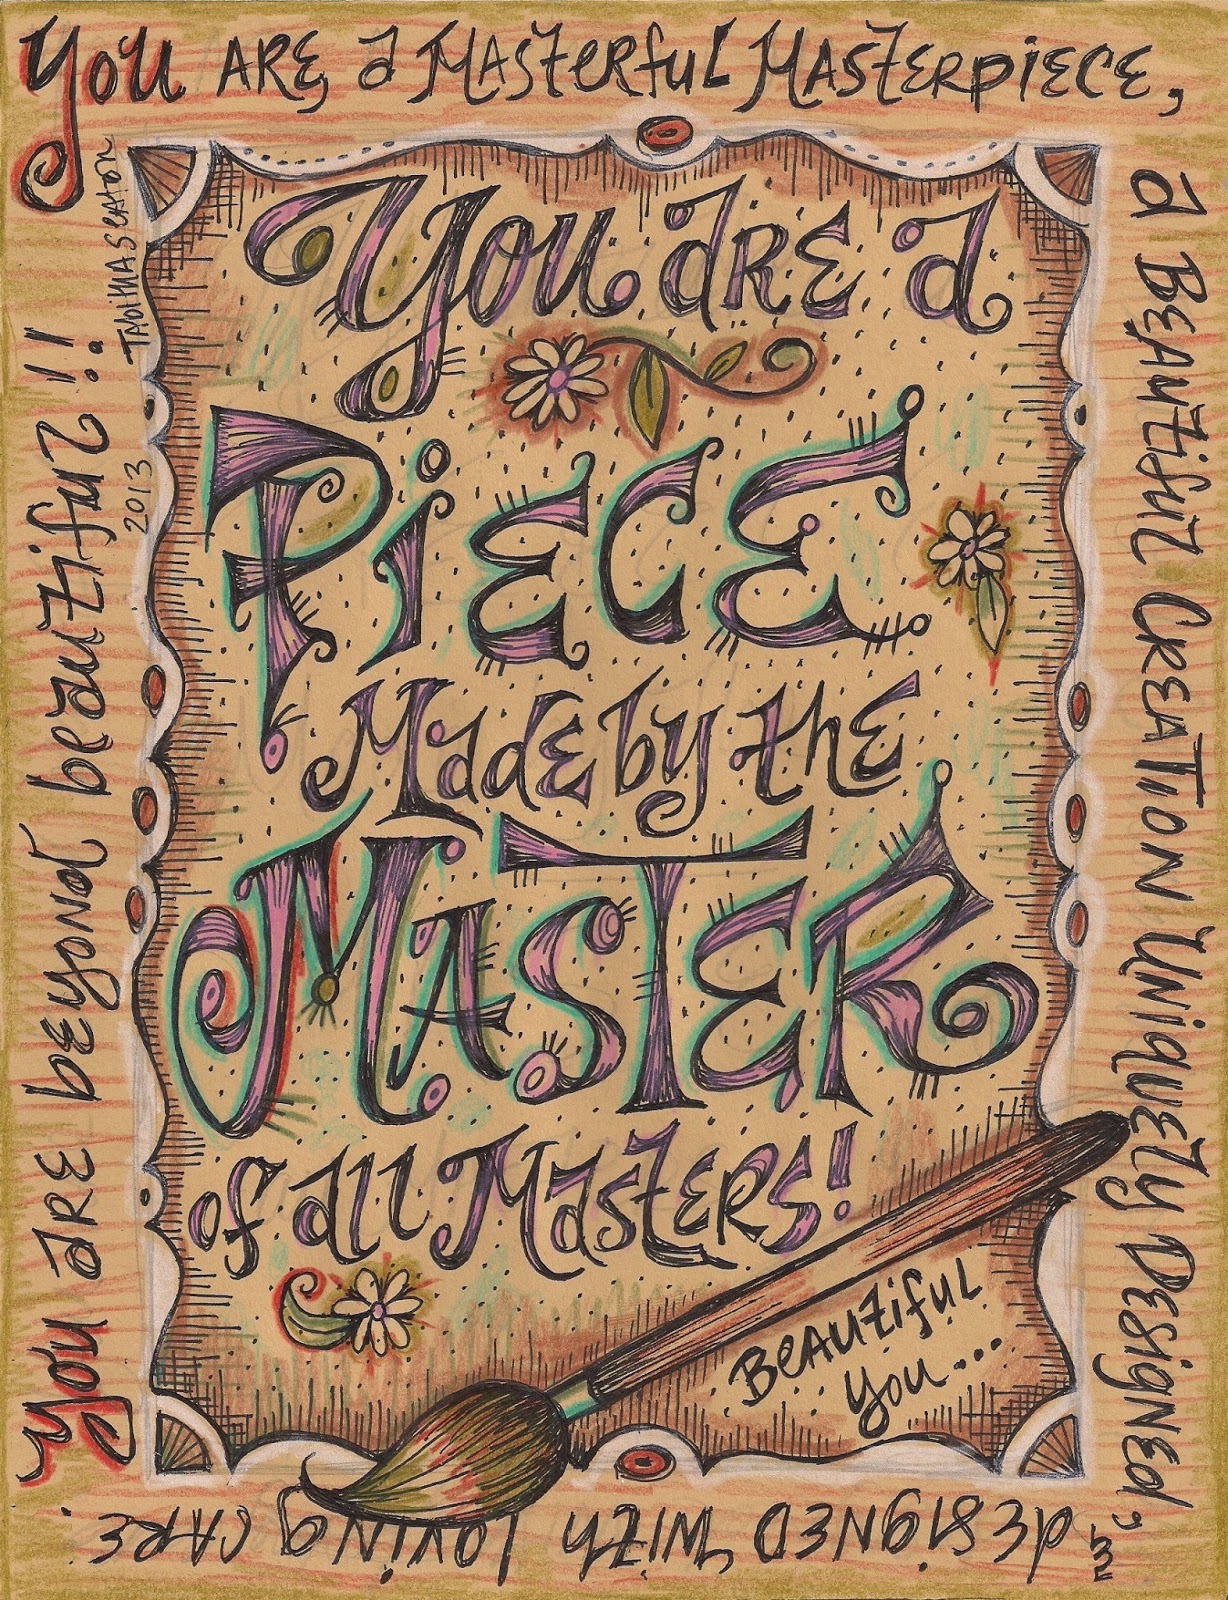 You ARE a Masterful Masterpiece,
a Beautiful Creation Uniquely Designed,
designed with loving care.
You are beyond beautiful!!
Tabitha Seaton
2013
You are a
Piece
Made by the
Master
of all Masters!
Beautiful
you....